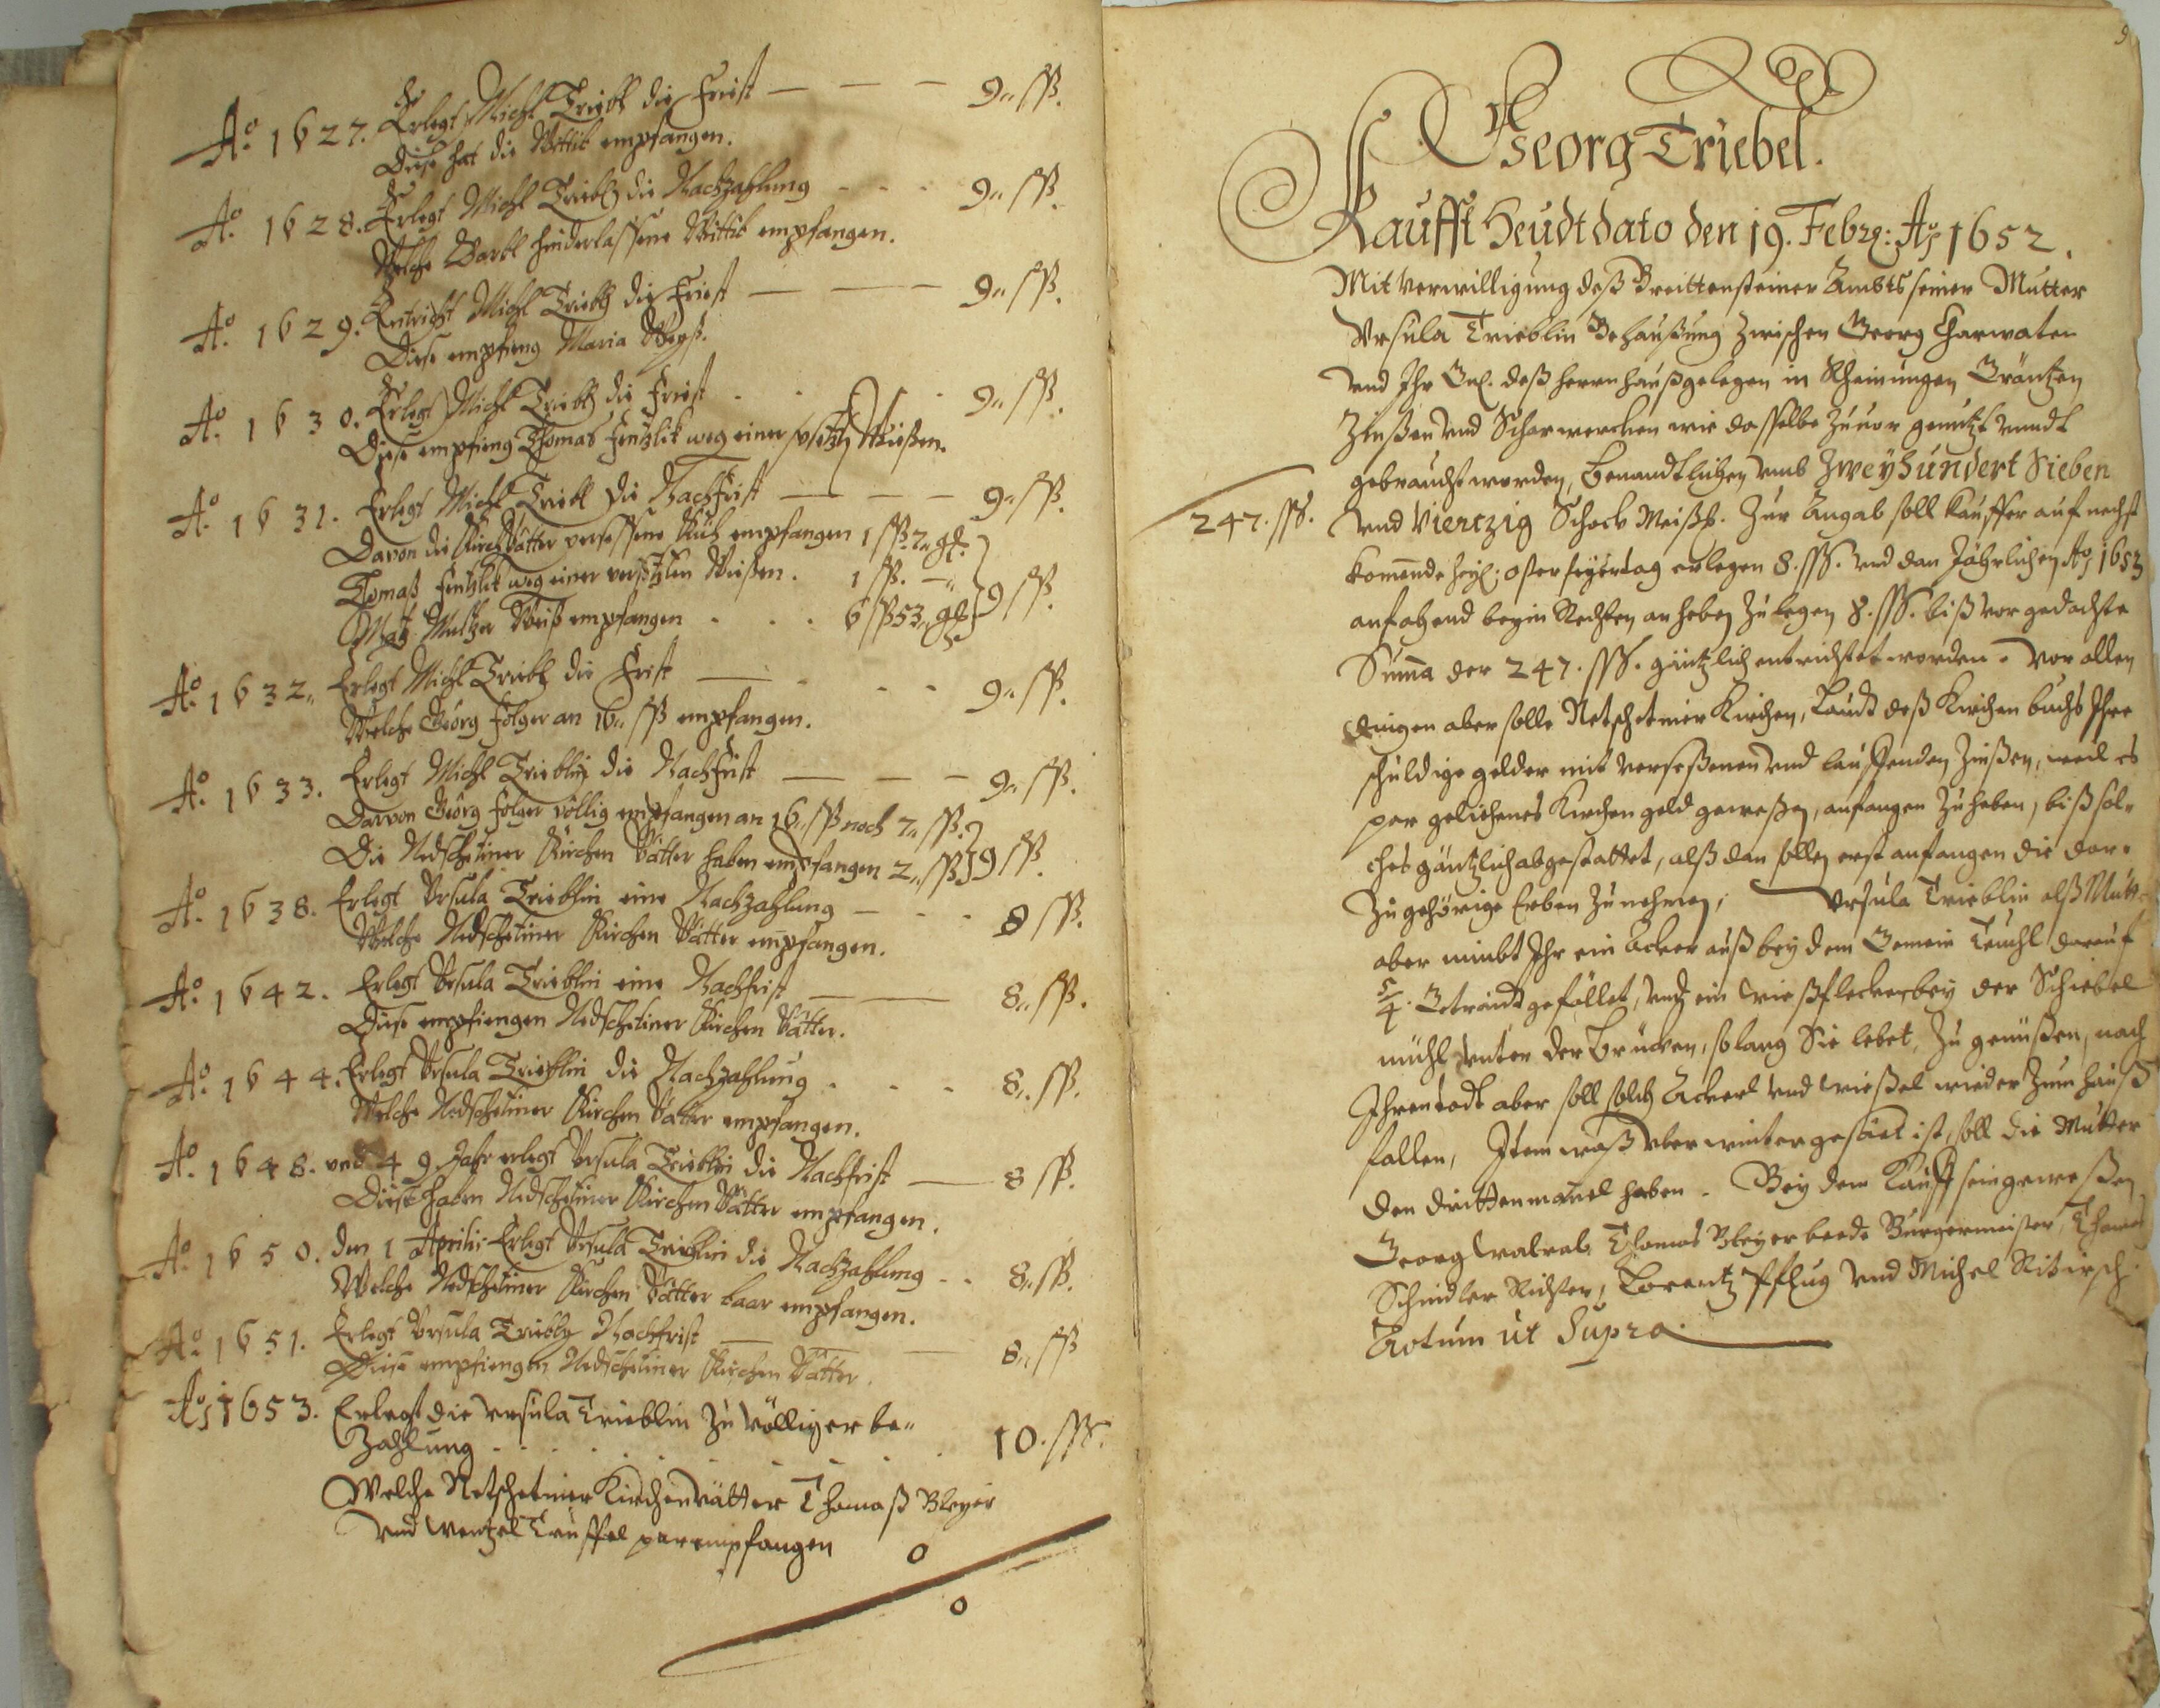 Aº 1627. Erlegt Michl Triebl die Frist — — — 9„ ſſß.
Diese hat die Wittib empfangen.
Aº 1628. Erlegt Michl Triebl die Nachzahlung - - - 9„ ſſß.
Welche Bartl hinderlassene Wittib empfangen.
Aº 1629. Entricht Michl Triebl die Frist — — — 9„ ſſß.
Diese empfieng Maria
Aº 1630. Erlegt Michl Triebl die Frist . . . 9„ ſſß.
Diese empfieng Thomas Fentzlik weg einer Wießen.
Aº 1631. Erlegt Michl Triebl die Nachfrist — — — 9„ ſſß.
Davon die Kirch Vätter versessene Küh empfangen 1 ſſß. 2„ gl.
Thomaß Fentzlik weg einer versetzten Wießen. 1 ſſß. —„
empfangen . . . 6 ſſß 53„ gl } 9 ſſß.
Aº 1632„ Erlegt Michl Triebl die Frist — . . - - 9„ ſſß.
Welche Georg Folger an 16„ ſſß empfangen.
Aº 1633. Erlegt Michl Trieblin die Nachfrist — — — 9„ ſſß.
Darvon Georg Folger völlig empfangen an 16„ ſſß noch 7„ ſſß.
Die Nedschetiner Kirchen Vätter haben empfangen 2„ ſſß } 9 ſſß.
Aº 1638. Erlegt Ursula Trieblin eine Nachzahlung — - - 8 ſſß.
Welche Nedschetiner Kirchen Vätter empfangen.
Aº 1642. Erlegt Ursula Trieblin eine Nachfrist — — 8„ ſſß.
Diese empfiengen Nedschetiner Kirchen Vätter.
Aº 1644. Erlegt Ursula Trieblin die Nachzahlung . - - 8„ ſſß.
Welche Nedschetiner Kirchen Vätter empfangen.
Aº 1648. und 49 Jahr erlegt Ursula Trieblin die Nachfrist — 8 ſſß.
Diese haben Nedschetiner Kirchen Vätter empfangen.
Aº 1650. den 1 Aprilis Erlegt Ursula Trieblin die Nachzahlung - - 8„ ſſß.
Welche Nedschetiner Kirchen Vätter baar empfangen.
Aº 1651. Erlegt Ursula Trieblin Nachfrist — — 8„ ſſß
Diese empfiengen Nedschetiner Kirchen Vätter.
Aº 1653. Erlegt die Ursula Trieblin zu völliger be„
zahlung . . . . . . 10. ſſß.
Welche Netschetiner Kirchenvätter Thomaß Bleyer
und Wentzel Teuffel par empfangen
0
0
Georg Triebel.
Kaufft Heudt dato den 19. Febrȷ: Aº 1652.
Mit Verwilligung deß Breittensteiner Ambts seiner Mutter
Ursula Trieblin Behaußung zwischen Georg Charwaten
und Ihr Gn. deß Herrn Hauß gelegen in Rheinungen Gräntzen
Zinßen und Scharwercken wie dasselbe zuvor genutzt unndt
gebraucht worden, Benandtlichen umb Zweyhundert Sieben
247. ſſß. und Viertzig Schock Meißn. Zur Angab soll kauffer auf nechst
komende heyl: osterfeyertag erlegen 8. ſſß. und dan Jährlichen Aº 1653
anfahend beyn Rechten anheben zulegen 8. ſſß. biß vorgedachte
Suma der 247. ſſß. gäntzlich entrichtet worden. Vor allen
dingen aber solle Netschetiner Kirchen, Laudt deß Kirchen buchs Ihre
schuldige gelder mit verseßenen und lauffenden Zinßen, weil es
par gelichenes Kirchen geld geweßen, anfangen zu heben, biß sol„
ches gäntzlich abgestattet, alßdan sollen erst anfangen die dar„
zugehörige Erben zunehmen, Ursula Trieblin alß Mutt„
aber nimbt Ihr ein Acker auß bey dem Gemein Teuchl darauf
5/4. Getraidt gefället, undt ein Wießflecken bey der Schiebel
mühl unter der Brucken, so lang Sie lebet, zu genüßen, nach
Ihren todt aber soll solch Ackerl und Wießel wieder zum hauß
fallen, Item waß uber winter gesäet ist, soll die Mutter
den dritten mandel haben. Bey dem Kauff sein geweßen
Georg Walrab Thomas Bleyer beede Burgermeister, Thomas
Schindler Richter, Lorentz Pflug und Michel
Actum ut Supra.